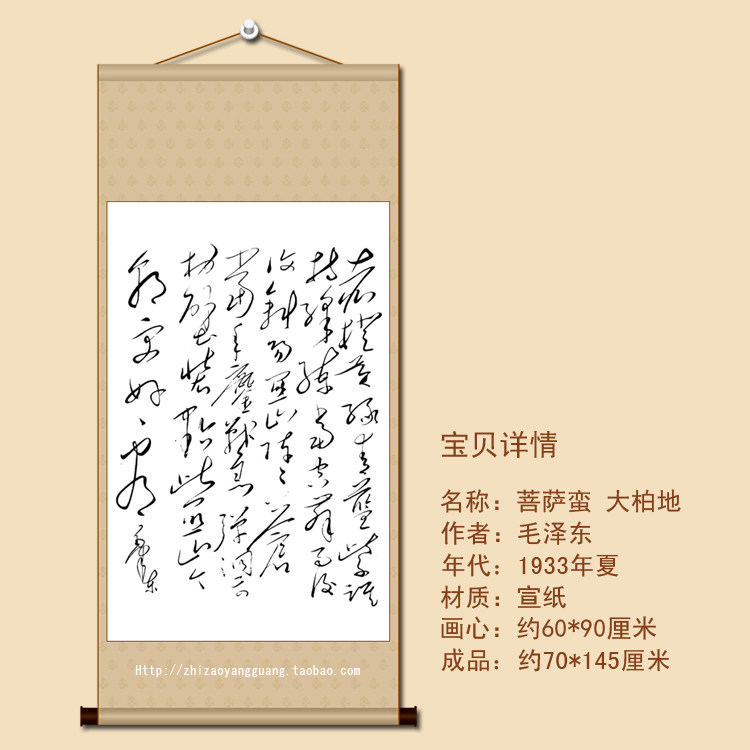 赤橙黄綠青藍紫誰
持彩練當空舞雨後
復斜陽關山陣陣蒼
當年鏖戰急彈洞前
村壁裝點此關山今
朝更好看
毛澤東
Http://zhizaoyangguang.taobao.com
宝贝详情
名称：菩萨蛮 大柏地
作者：毛泽东
年代：1933年夏
材质：宣纸
画心：约60*90厘米
成品：约70*145厘米